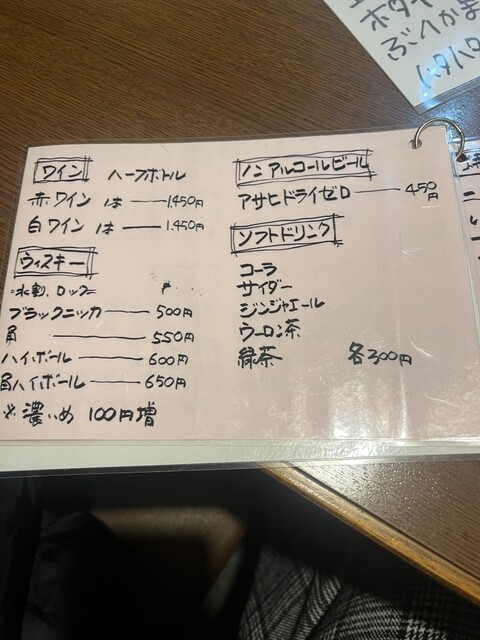 ワイン ハーフボトル
赤ワイン 1本 ― 1,450円
白ワイン 1本 ― 1,450円
ウィスキー
=水割、ロック=
ブラックニッカ ― 500円
角 ― 550円
ハイボール ― 600円
角ハイボール ― 650円
※濃いめ 100円増
ノンアルコールビール
アサヒドライゼロ ― 450円
ソフトドリンク
コーラ
サイダー
ジンジャエール
ウーロン茶
緑茶 各300円